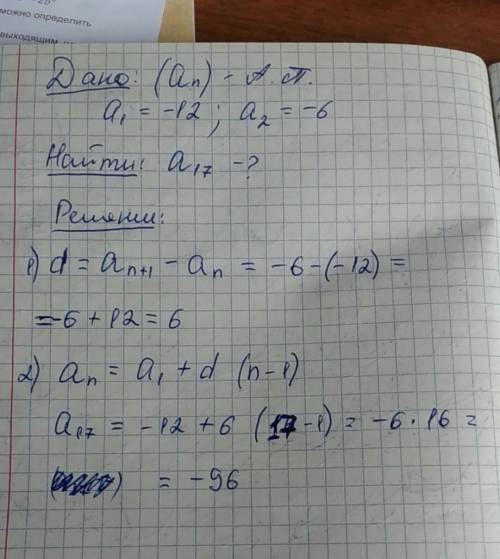 можно определить
выходящим
Дано: (an) - А.П.
a₁ = -12 ; a₂ = -6
Найти: a₁₇ - ?
Решении:
1) d = aₙ₊₁ - aₙ = -6 - (-12) =
= -6 + 12 = 6
2) aₙ = a₁ + d (n - 1)
a₁₇ = -12 + 6 (17 - 1) = -6 · 16 =
= -96